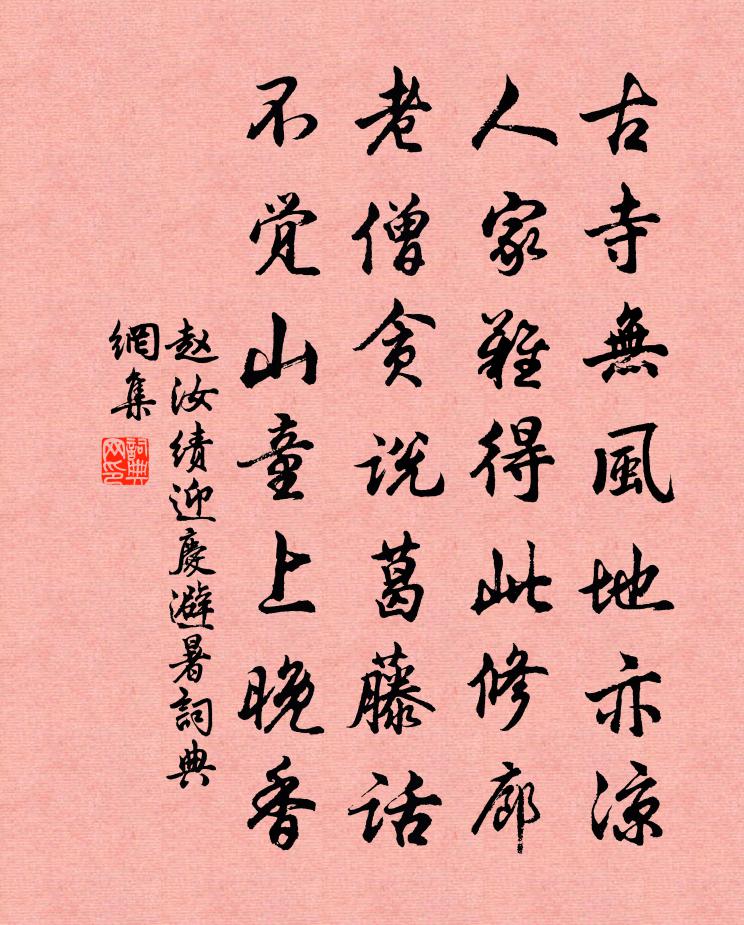 古寺無風地亦凉
人家難得此修廊
老僧貪说葛藤话
不觉山童上晚香
赵汝绩迎慶避暑詞典
網集
詞典網印